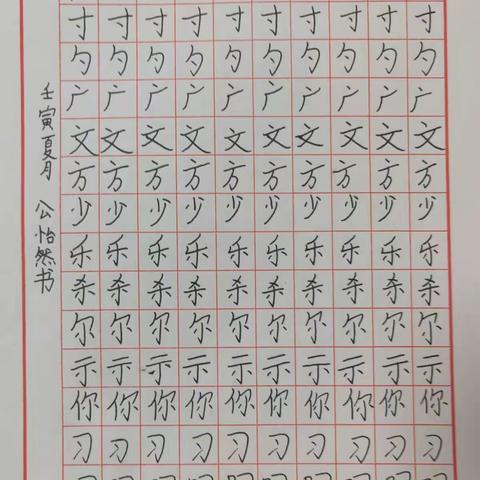 寸寸寸寸寸寸寸寸寸寸
勺勺勺勺勺勺勺勺勺勺
广广广广广广广广广广
文文文文文文文文文文
方方方方方方方方方方
少少少少少少少少少少
乐乐乐乐乐乐乐乐乐乐
杀杀杀杀杀杀杀杀杀杀
尔尔尔尔尔尔尔尔尔尔
示示示示示示示示示示
你你你你你你你你你你
习习习习习习习习习习
壬寅夏月 公怡然书